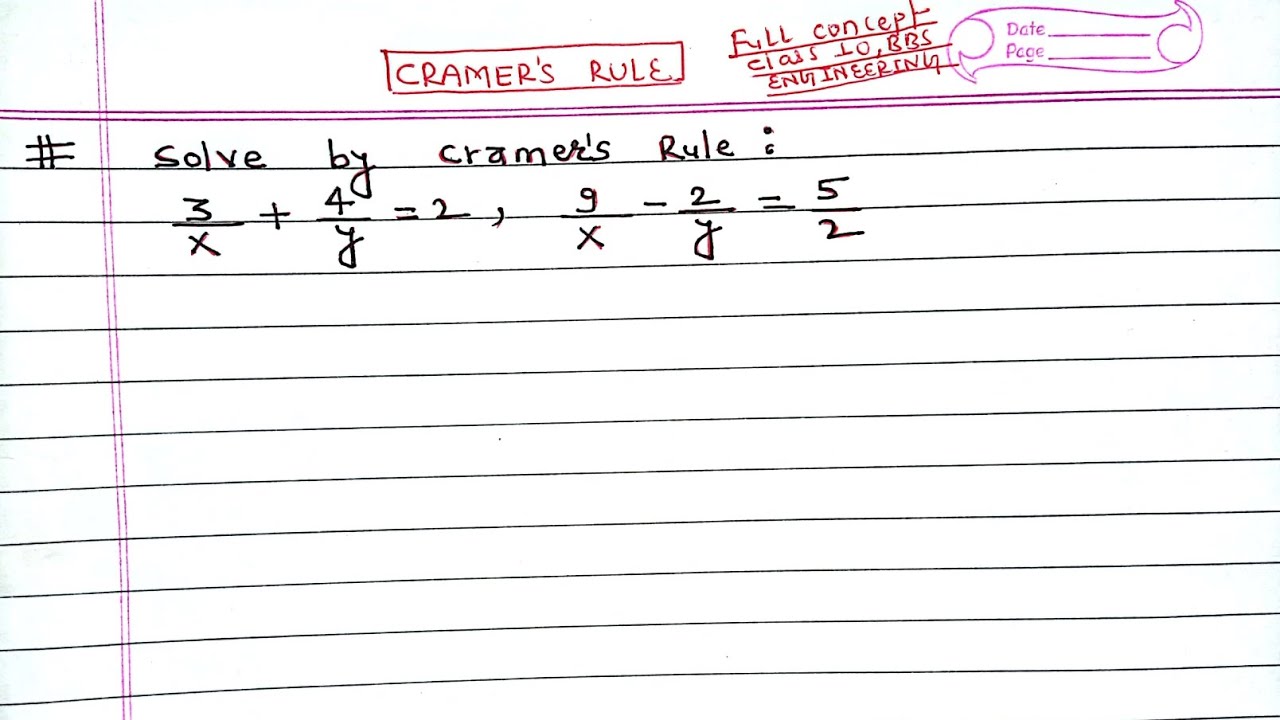 CRAMER'S RULE
Full concept
class 10, BBS
ENGINEERING
Date
Page
# Solve by cramer's Rule :
3/x + 4/y = 2 , 9/x - 2/y = 5/2